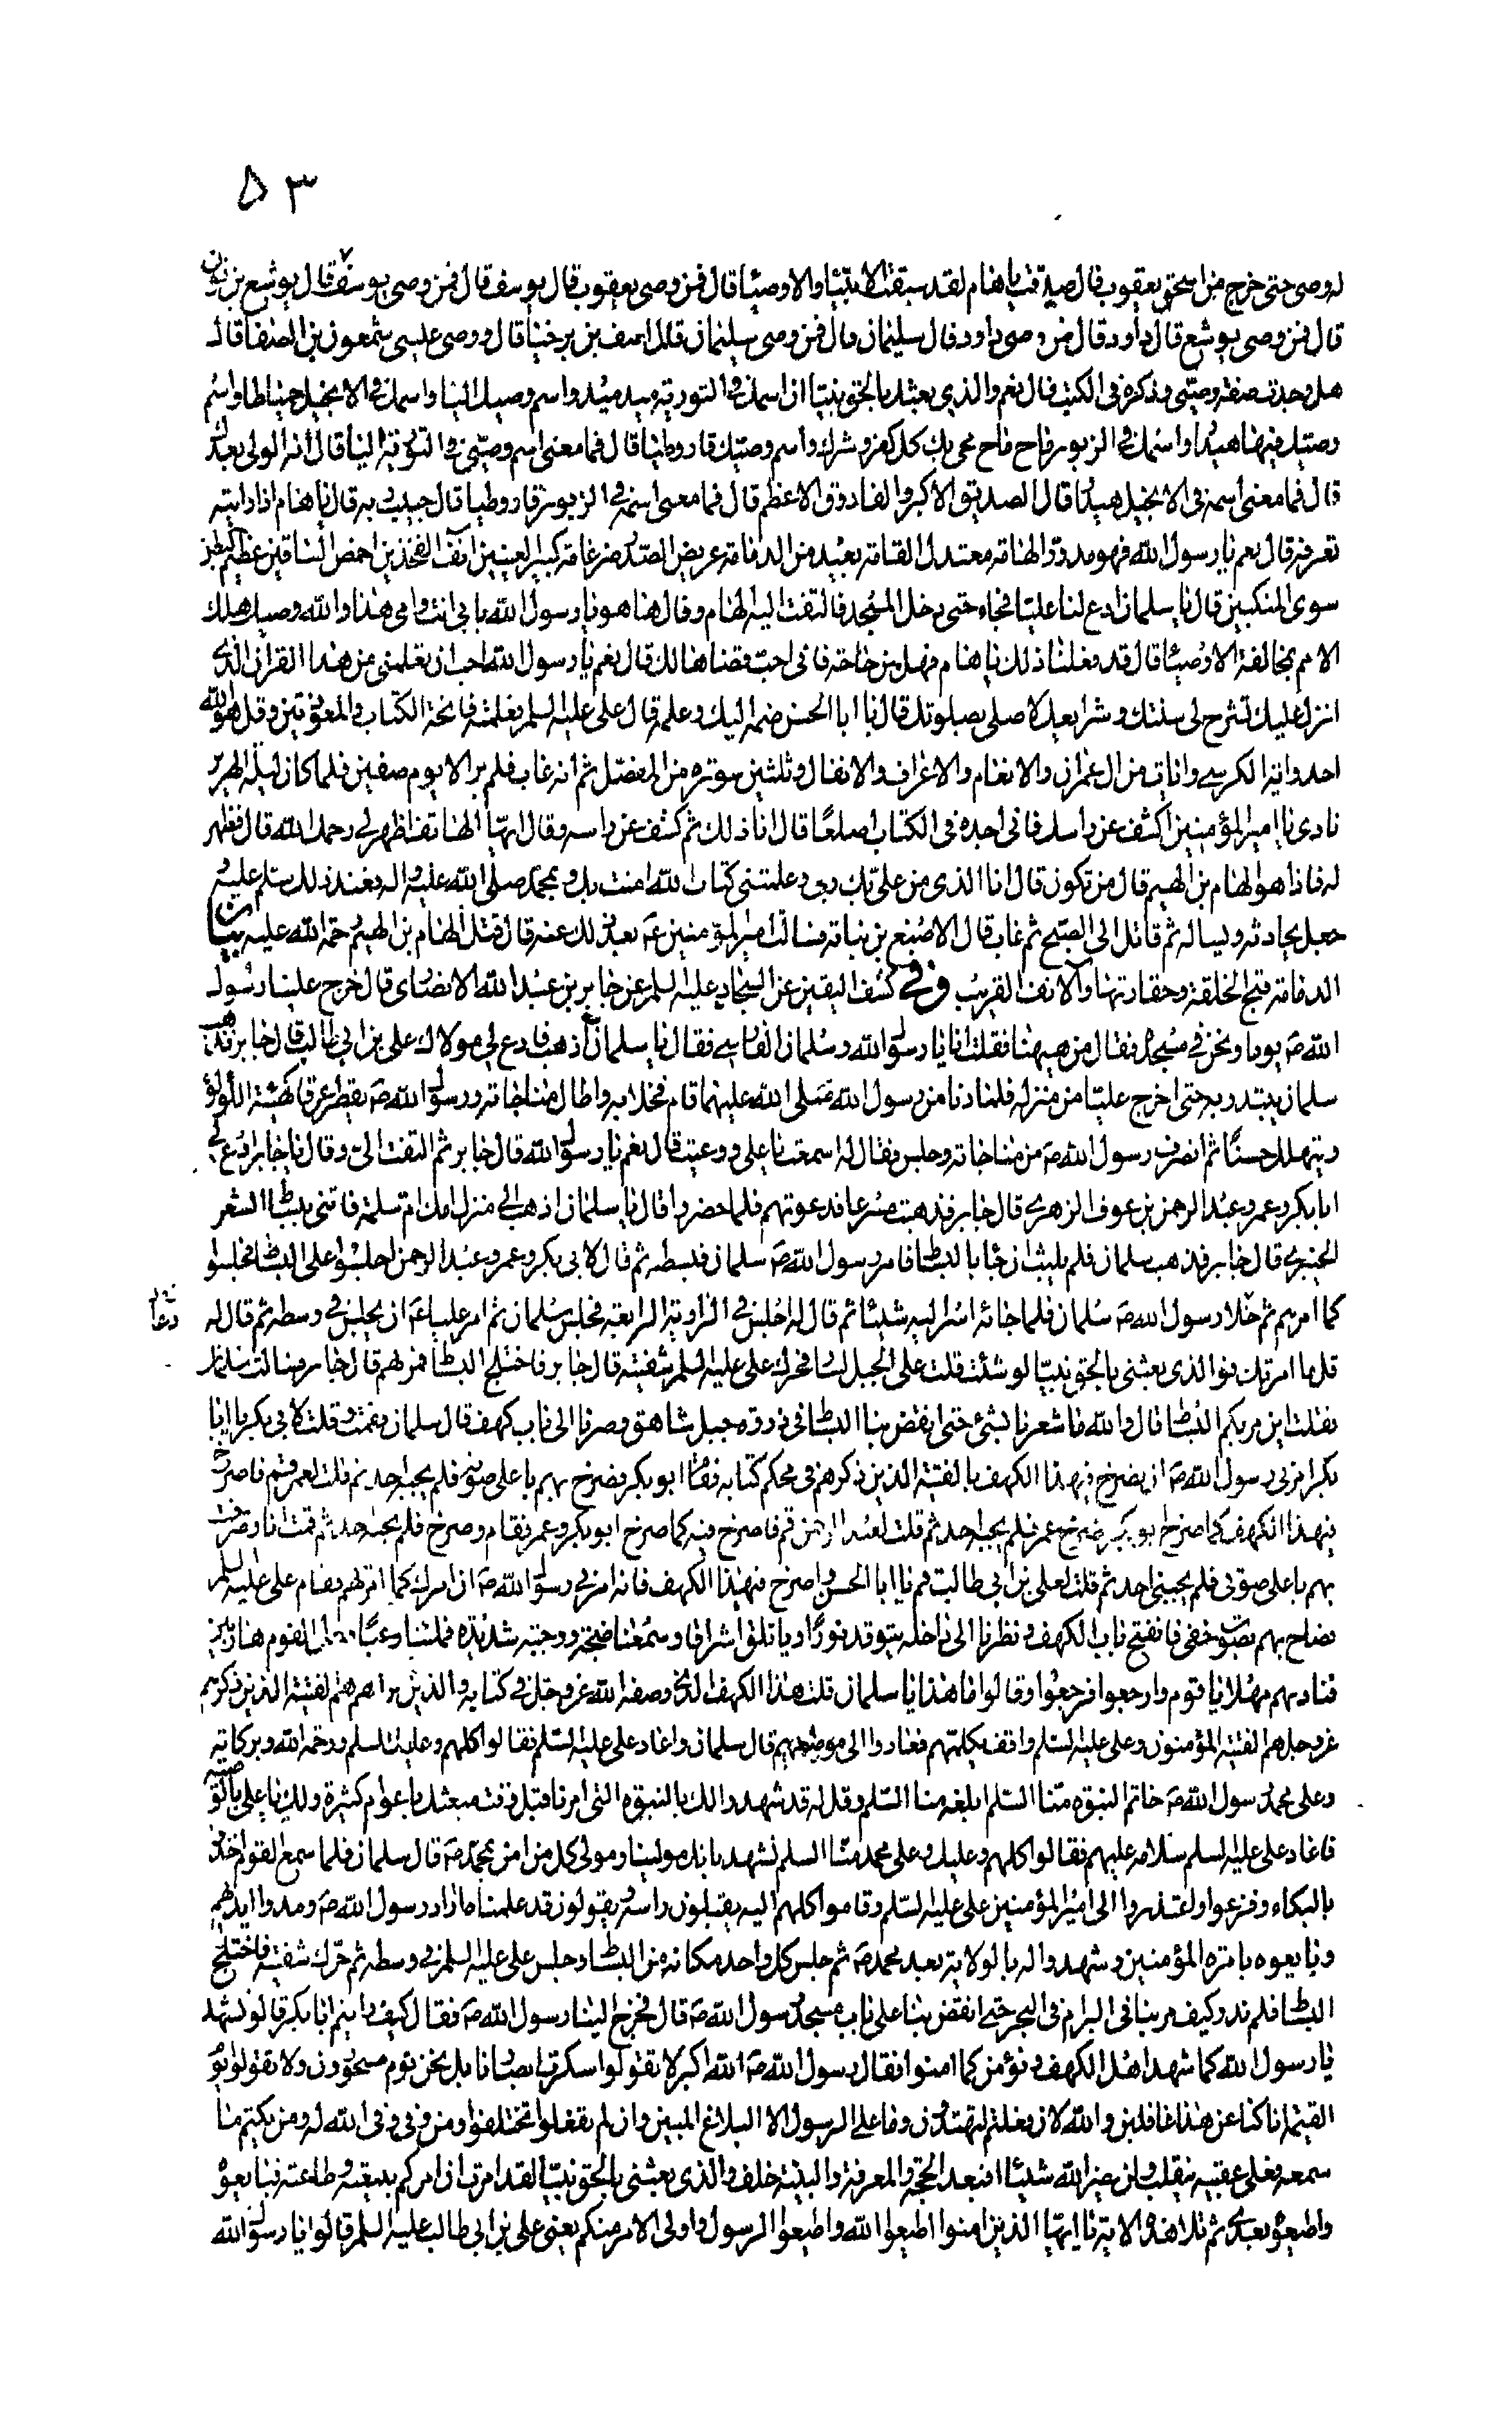 ٥٣
له وصى حتى خرج من اسحق يعقوب قال صدقت يا هام لقد سبقت الانبياء والاوصياء قال فمن وصى يعقوب قال يوسف قال فمن وصى يوسف قال يوشع بن نون
قال فمن وصى يوشع قال داود قال فمن وصى داود قال سليمان قال فمن وصى سليمان قال اصف بن برخيا قال ووصى عيسى شمعون بن الصفا قال
هل وجدت صفة وصيى وذكره فى الكتب قال نعم والذى بعثك بالحق نبيا ان اسمك فى التورية ميد ميد واسم وصيك اليا واسمك فى الانجيل حمياطا واسم
وصيك فيها هيدا واسمك فى الزبور ماح ماح محى بك كل كفر وشرك واسم وصيك قاروطيا قال فما معنى اسم وصيى فى التورية اليا قال انه الولى بعدك
قال فما معنى اسمه فى الانجيل هيدا قال الصديق الاكبر والفاروق الاعظم قال فما معنى اسمه فى الزبور قاروطيا قال حبيب ربه قال يا هام اذا رايته
تعرفه قال نعم يا رسول الله فهو مدور الهامة معتدل القامة بعيد من الدمامة عريض الصدر ضرغامة كبير العينين انف الفخذين اخمص الساقين عظيم البطن
سوى المنكبين قال يا سلمان ادع لنا عليا فجاء حتى دخل المسجد فالتفت اليه الهام وقال ها هو يا رسول الله بابى انت وامى هذا والله وصيك هلك
الامم بمخالفة الاوصياء قال قد فعلنا ذلك يا هام فهل من حاجة فانى احب قضاها لك قال نعم يا رسول الله احب ان تعلمنى من هذا القران الذى
انزل عليك تشرح لى سنتك وشرايعك لاصلى بصلوتك قال يا ابا الحسن ضمه اليك وعلمه قال على عليه السلم فعلمته فاتحة الكتاب والمعوذتين وقل هو الله
احد واية الكرسى وايات من ال عمران والانعام والاعراف والانفال وثلثين سورة من المفصل ثم انه غاب فلم ير الا يوم صفين فلما كان ليلة الهرير
نادى يا امير المؤمنين اكشف عن راسك فانى اجده فى الكتاب اصلعا قال انا ذلك ثم كشف عن راسه وقال ايها الهاتف اظهر لى رحمك الله قال فظهر
له فاذا هو الهام بن الهيم قال من تكون قال انا الذى من على بك ربى وعلمتنى كتاب الله امنت بك وبمحمد صلى الله عليه واله فعند ذلك سلم عليه و
جعل يحادثه ويساله ثم قاتل الى الصبح ثم غاب قال الاصبغ بن نباتة فسالت امير المؤمنين عم بعد ذلك عنه قال قتل الهام بن الهيم رحمة الله عليه بيان
الدمامة قبح الخلقة وحقارتها والانف القريب وفى كشف اليقين عن السجاد عليه السلم عن جابر بن عبد الله الانصارى قال خرج علينا رسول
الله ص يوما ونحن فى مسجده فقال من ههنا فقلت انا يا رسول الله وسلمان الفارسى فقال يا سلمان اذهب فادع لى مولاك على بن ابى طالب قال جابر فذهب
سلمان يبتدر به حتى اخرج عليا من منزله فلما دنا من رسول الله صلى الله عليهما قام فخلا به واطال مناجاته ورسول الله ص يقطر عرقا كهيئة اللؤلؤ
ويتهلل حسنا ثم انصرف رسول الله ص من مناجاته وجلس فقال له اسمعت يا على ووعيت قال نعم يا رسول الله قال جابر ثم التفت الى وقال يا جابر ادع لى
ابا بكر وعمر وعبد الرحمن بن عوف الزهرى قال جابر فذهبت مسرعا فدعوتهم فلما حضروا قال يا سلمان اذهب الى منزل امك ام سلمة فاتنى ببساط الشعر
الخيبرى قال جابر فذهب سلمان فلم يلبث ان جاء بالبساط فامر رسول الله ص سلمان فبسطه ثم قال لابى بكر وعمر وعبد الرحمن اجلسوا على البساط فجلسوا
كما امرهم ثم خلا رسول الله ص سلمان فلما جائه اسر اليه شيئا ثم قال له اجلس فى الزاوية الرابعة فجلس سلمان ثم امر عليا عم ان يجلس فى وسطه ثم قال له
دعا
قل ما امرتك فو الذى بعثنى بالحق نبيا لو شئت قلت على الجبل لسار فحرك على عليه السلم شفتيه قال جابر فاختلج البساط فمر بهم قال جابر فسالت سلمان
فقلت اين مر بكم البساط قال والله ما شعرنا بشىء حتى انقض بنا البساط فى ذروة جبل شاهق وصرنا الى باب كهف قال سلمان فقمت وقلت لابى بكر يا ابا
بكر امرنى رسول الله ص ان يصرخ فى هذا الكهف بالفتية الذين ذكرهم فى محكم كتابه فقام ابو بكر فصرخ بهم باعلى صوته فلم يجبه احد ثم قلت لعمر قم فاصرخ
فى هذا الكهف كما صرخ ابو بكر فصرخ عمر فلم يجبه احد ثم قلت لعبد الرحمن قم فاصرخ فيه كما صرخ ابو بكر وعمر فقام وصرخ فلم يجبه احد ثم قمت انا وصرخت
بهم باعلى صوتى فلم يجبنى احد ثم قلت لعلى بن ابى طالب قم يا ابا الحسن واصرخ فى هذا الكهف فانه امرنى رسول الله ص ان امرك كما امرتهم فقام على عليه السلم
فصاح بهم بصوت خفى فانفتح باب الكهف ونظرنا الى داخله يتوقد نورا ويتالق اشراقا وسمعنا ضجة ووجبة شديدة فملئنا رعبا القوم هاربين
فناديهم مهلا يا قوم وارجعوا فرجعوا وقالوا ما هذا يا سلمان قلت هذا الكهف الذى وصفه الله عز وجل فى كتابه والذين نراهم هم الفتية الذين ذكرهم
عز وجل هم الفتية المؤمنون وعلى عليه السلم واقف يكلمهم فعادوا الى موضعهم قال سلمان واعاد على عليه السلم فقالوا كلهم وعليك السلم ورحمة الله وبركاته
وعلى محمد رسول الله ص خاتم النبوة منا السلم ابلغه منا السلم وقل له قد شهدوا لك بالنبوة التى امرنا قبل وقت مبعثك باعوام كثيرة ولك يا على بالوصية
فاعاد على عليه السلم سلامه عليهم فقالوا كلهم وعليك وعلى محمد منا السلم نشهد بانك مولينا ومولى كل من امن بمحمد ص قال سلمان فلما سمع القوم اخذوا
بالبكاء وفزعوا واعتذروا الى امير المؤمنين على عليه السلم وقاموا كلهم اليه يقبلون راسه ويقولون قد علمنا ما اراد رسول الله ص ومدوا ايديهم
وبايعوه بامرة المؤمنين وشهدوا له بالولاية بعد محمد ص ثم جلس كل واحد مكانه من البساط وجلس على عليه السلم فى وسطه ثم حرك شفتيه فاختلج
البساط فلم ندر كيف مر بنا فى البر ام فى البحر حتى انقض بنا على باب مسجد رسول الله ص قال فخرج الينا رسول الله ص فقال كيف رايتم يا ابا بكر قالوا نشهد
يا رسول الله كما شهد اهل الكهف ونؤمن كما امنوا فقال رسول الله ص الله اكبر لا تقولوا سكرت ابصارنا بل نحن قوم مسحورون ولا تقولوا يوم
القيمة انا كنا عن هذا غافلين والله لان فعلتم لتهتدون وما على الرسول الا البلاغ المبين وان لم تفعلوا تختلفوا ومن وفى وفى الله له ومن يكتم ما
سمعه فعلى عقبيه ينقلب ولن يضر الله شيئا افبعد الحجة والمعرفة والبينة خلف والذى بعثنى بالحق نبيا لقد امرت ان امركم ببيعته وطاعته فبايعوه
واطيعوه بعدى ثم تلا هذه الاية يا ايها الذين امنوا اطيعوا الله واطيعوا الرسول واولى الامر منكم يعنى على بن ابى طالب عليه السلم قالوا يا رسول الله